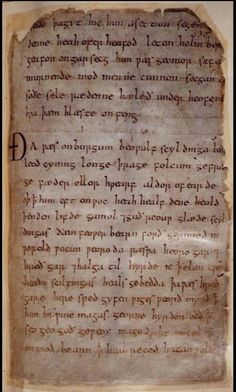 þa gyt hie him asetton segen
denne heah ofer heafod leton holm
geafon ongarsecg him ƿæs geomor sefa
murnende mod men ne cunnon secgan
soðe sele rædenne hæleð under
hƿa þæm hlæste onfeng.
ÐA ƿæs onburgum beoƿulf scyldinga
leod cyning longe þrage folcum gefræ
ge fæder ellor hƿearf aldor of earde
oþ þ him eft onƿoc heah healf dene heold
þenden lifde gamol ⁊ guð reouƿ glæde scyl
dingas ðæm feoƿer bearn forð gerimed in
ƿorold ƿocun ƿeoroda ræsƿa heoro gar ⁊
hroð gar ⁊ halga til hyrde ic þ elan cƿen
heaðo scilfingas heals gebedda þa ƿæs hroð
gare here sped gyfen ƿiges ƿeorð mynd þ
him his ƿine magas georne hyrdon oðð
seo geogoð geƿeox mago driht micel
on mod bearn þ heal reced hatan ƿolde